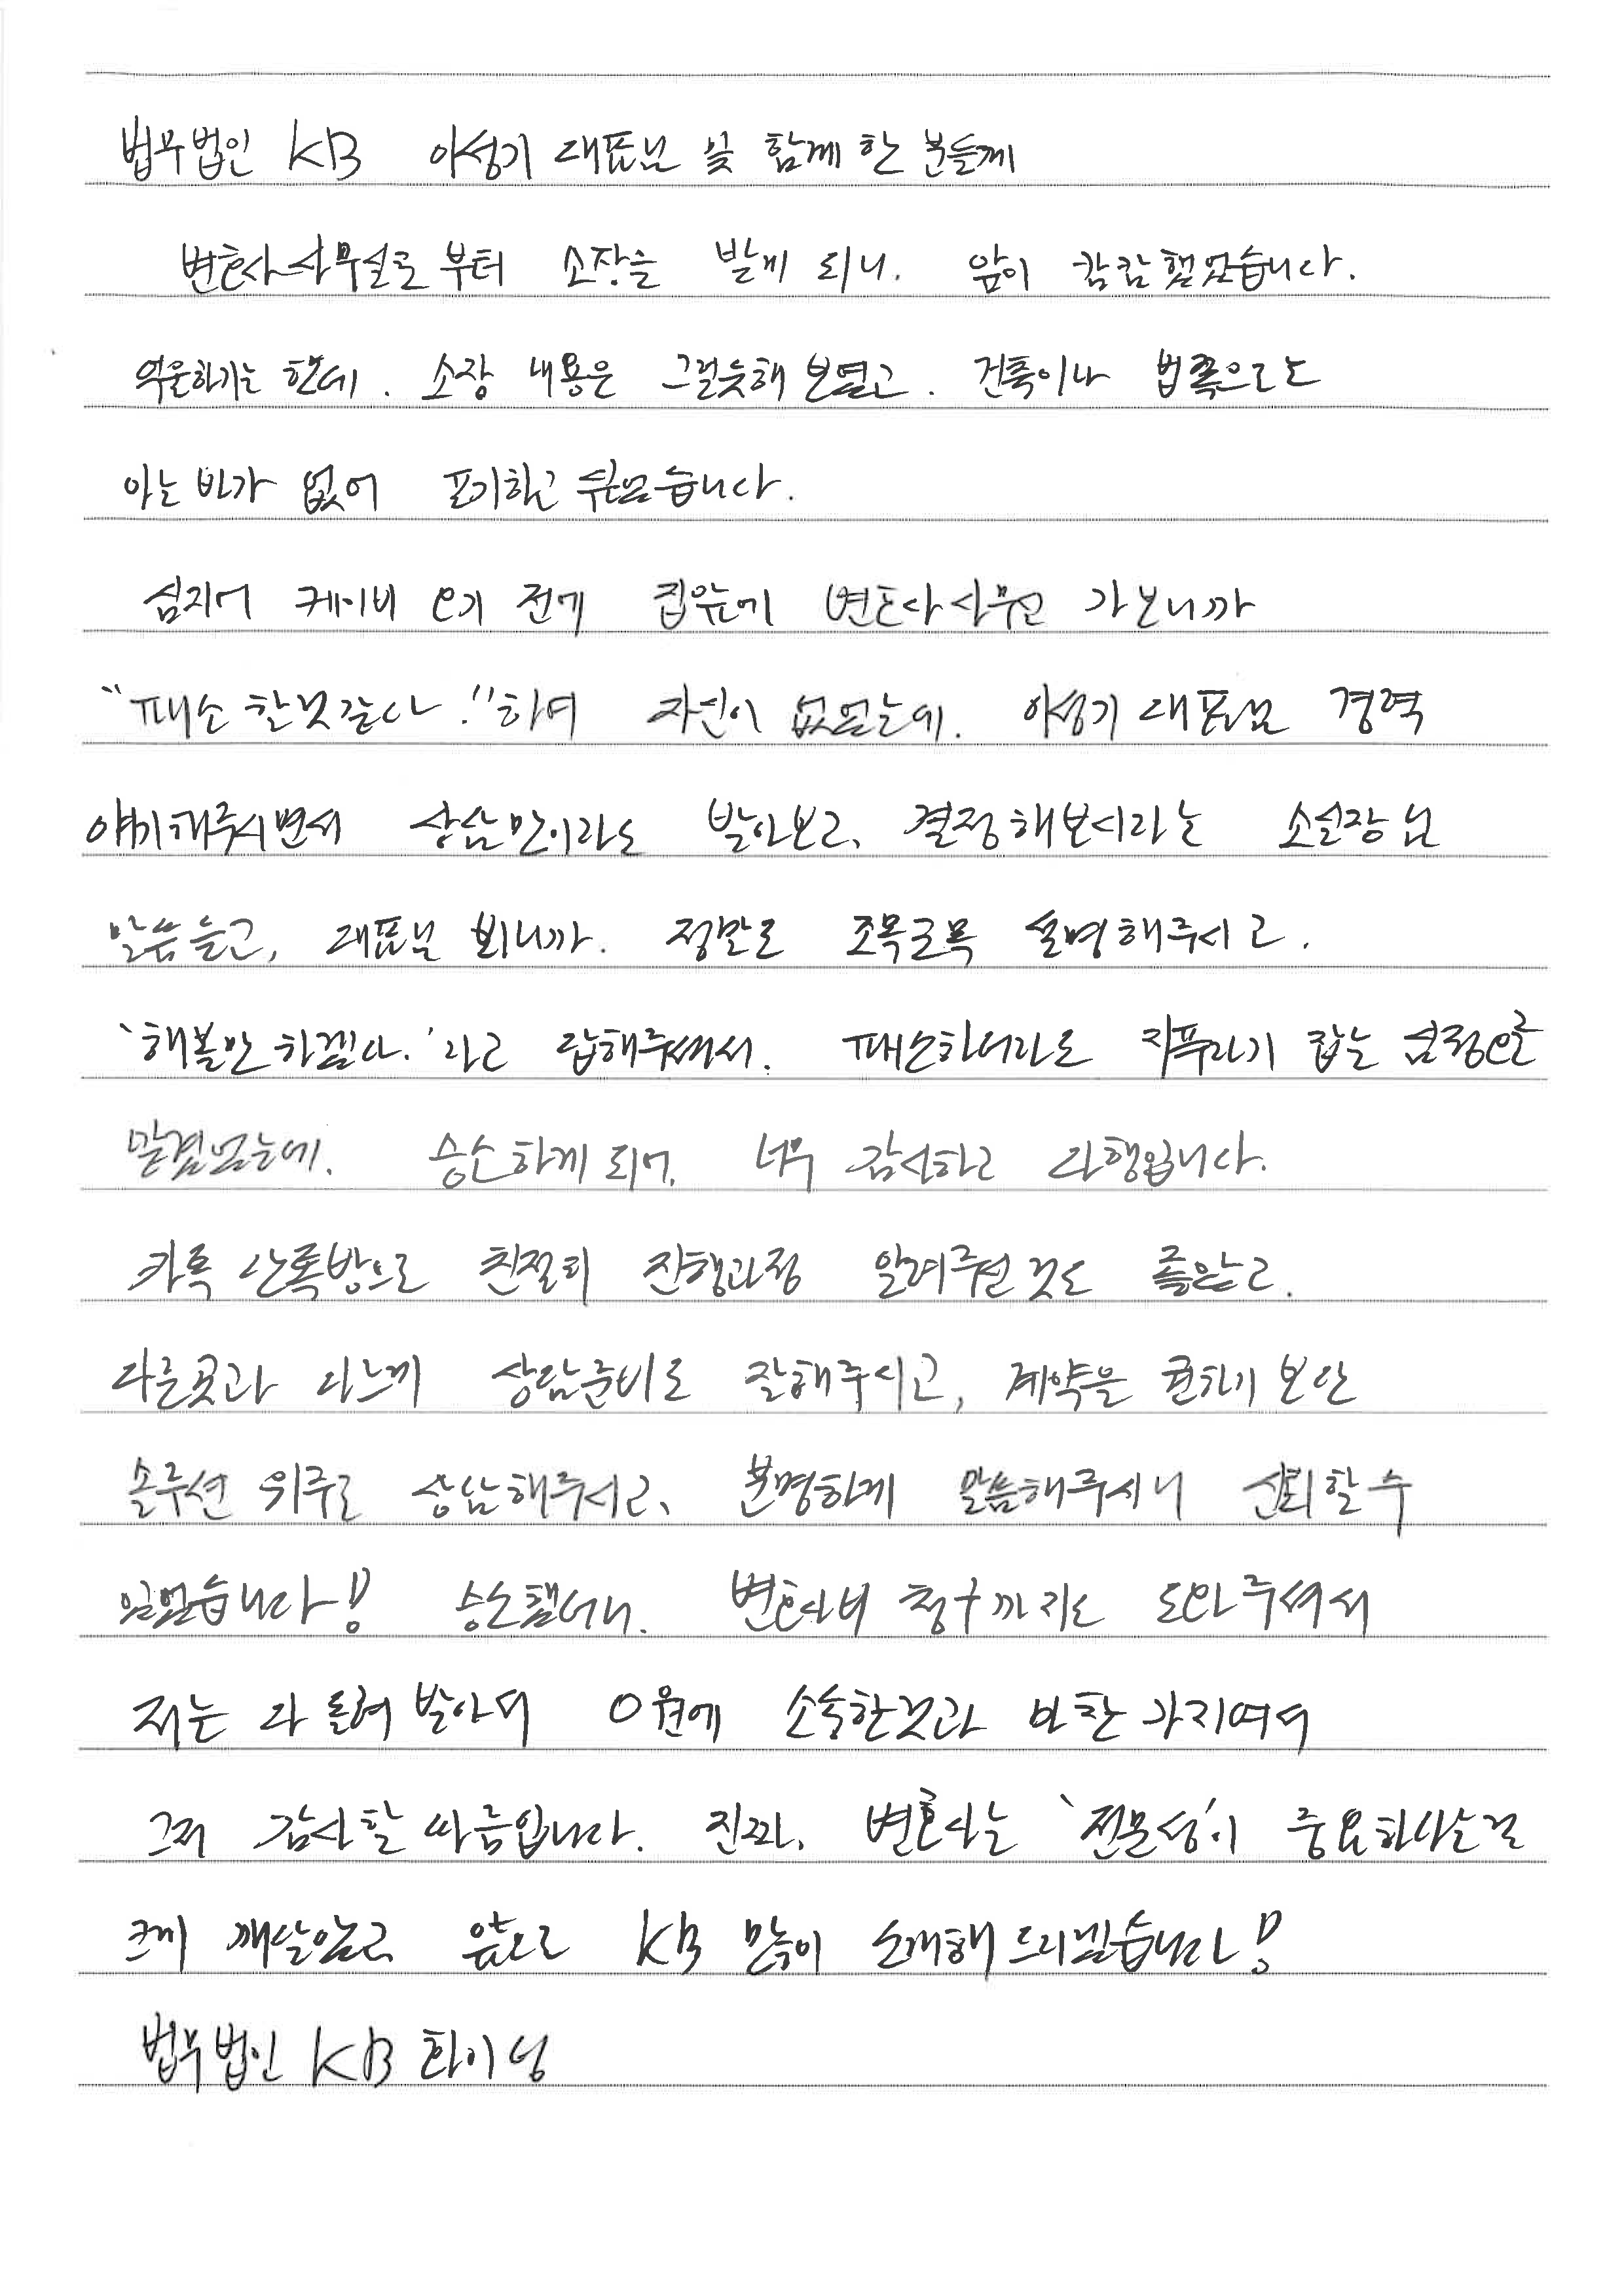 법무법인 KB 이성기 대표님 및 함께 한 분들께
변호사사무실로 부터 소장을 받게 되니, 앞이 캄캄했었습니다.
억울하기는 한데, 소장 내용은 그럴듯해 보였고, 건축이나 법쪽으로도
아는바가 없어 포기하고 싶었습니다.
심지어 케이비 오기 전에 집앞에 변호사 사무실 가보니까
"패소 할것같다."하며 자신이 없었는데, 이성기 대표님 경력
얘기해주시면서 상담만이라도 받아보고, 결정해보시라는 소실장님
말씀듣고, 대표님 뵈니까, 정말로 조목조목 설명해주시고,
'해볼만 하겠다.'라고 답해주셔서, 패소하더라도 지푸라기 잡는 심정으로
맡겼었는데, 승소하게 되어, 너무 감사하고 다행입니다.
카톡 단톡방으로 친절히 진행과정 알려주신것도 좋았고,
다른곳과 다르게 상담준비도 잘해주시고, 계약을 권하기 보단
솔루션 위주로 상담해주시고, 분명하게 말씀해주시니 신뢰할 수
있었습니다! 승소했더니, 변호사비 청구까지도 도와주셔서
저는 다 돌려 받아서 0원에 소송한것과 마찬가지여서
그저 감사할 따름입니다. 진짜, 변호사는 '전문성'이 중요하다는걸
크게 깨달았고 앞으로 KB 많이 소개해 드리겠습니다!
법무법인 KB 화이팅